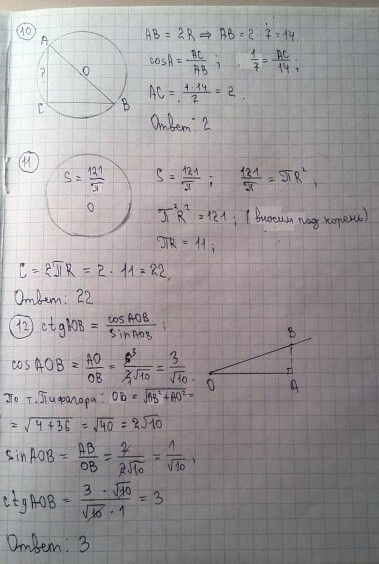 10
A
?
O
C
B
AB = 2R ⇒ AB = 2·7 = 14
cosA = AC/AB ; 1/7 = AC/14 ;
AC = 1·14/7 = 2
Ответ: 2
11
S = 121/π
O
S = 121/π ; 121/π = πR² ,
π²R² = 121 ; (вносим под корень)
πR = 11 ;
C = 2πR = 2 · 11 = 22,
Ответ: 22
12 ctgAOB = cosAOB/sinAOB ;
cosAOB = AO/OB = 6³/2√10 = 3/√10 .
По т. Пифагора: OB = √AB²+AO² =
= √4+36 = √40 = 2√10
sinAOB = AB/OB = 2/2√10 = 1/√10 ,
ctgAOB = 3 · √10/√10 · 1 = 3
Ответ: 3
B
O
A